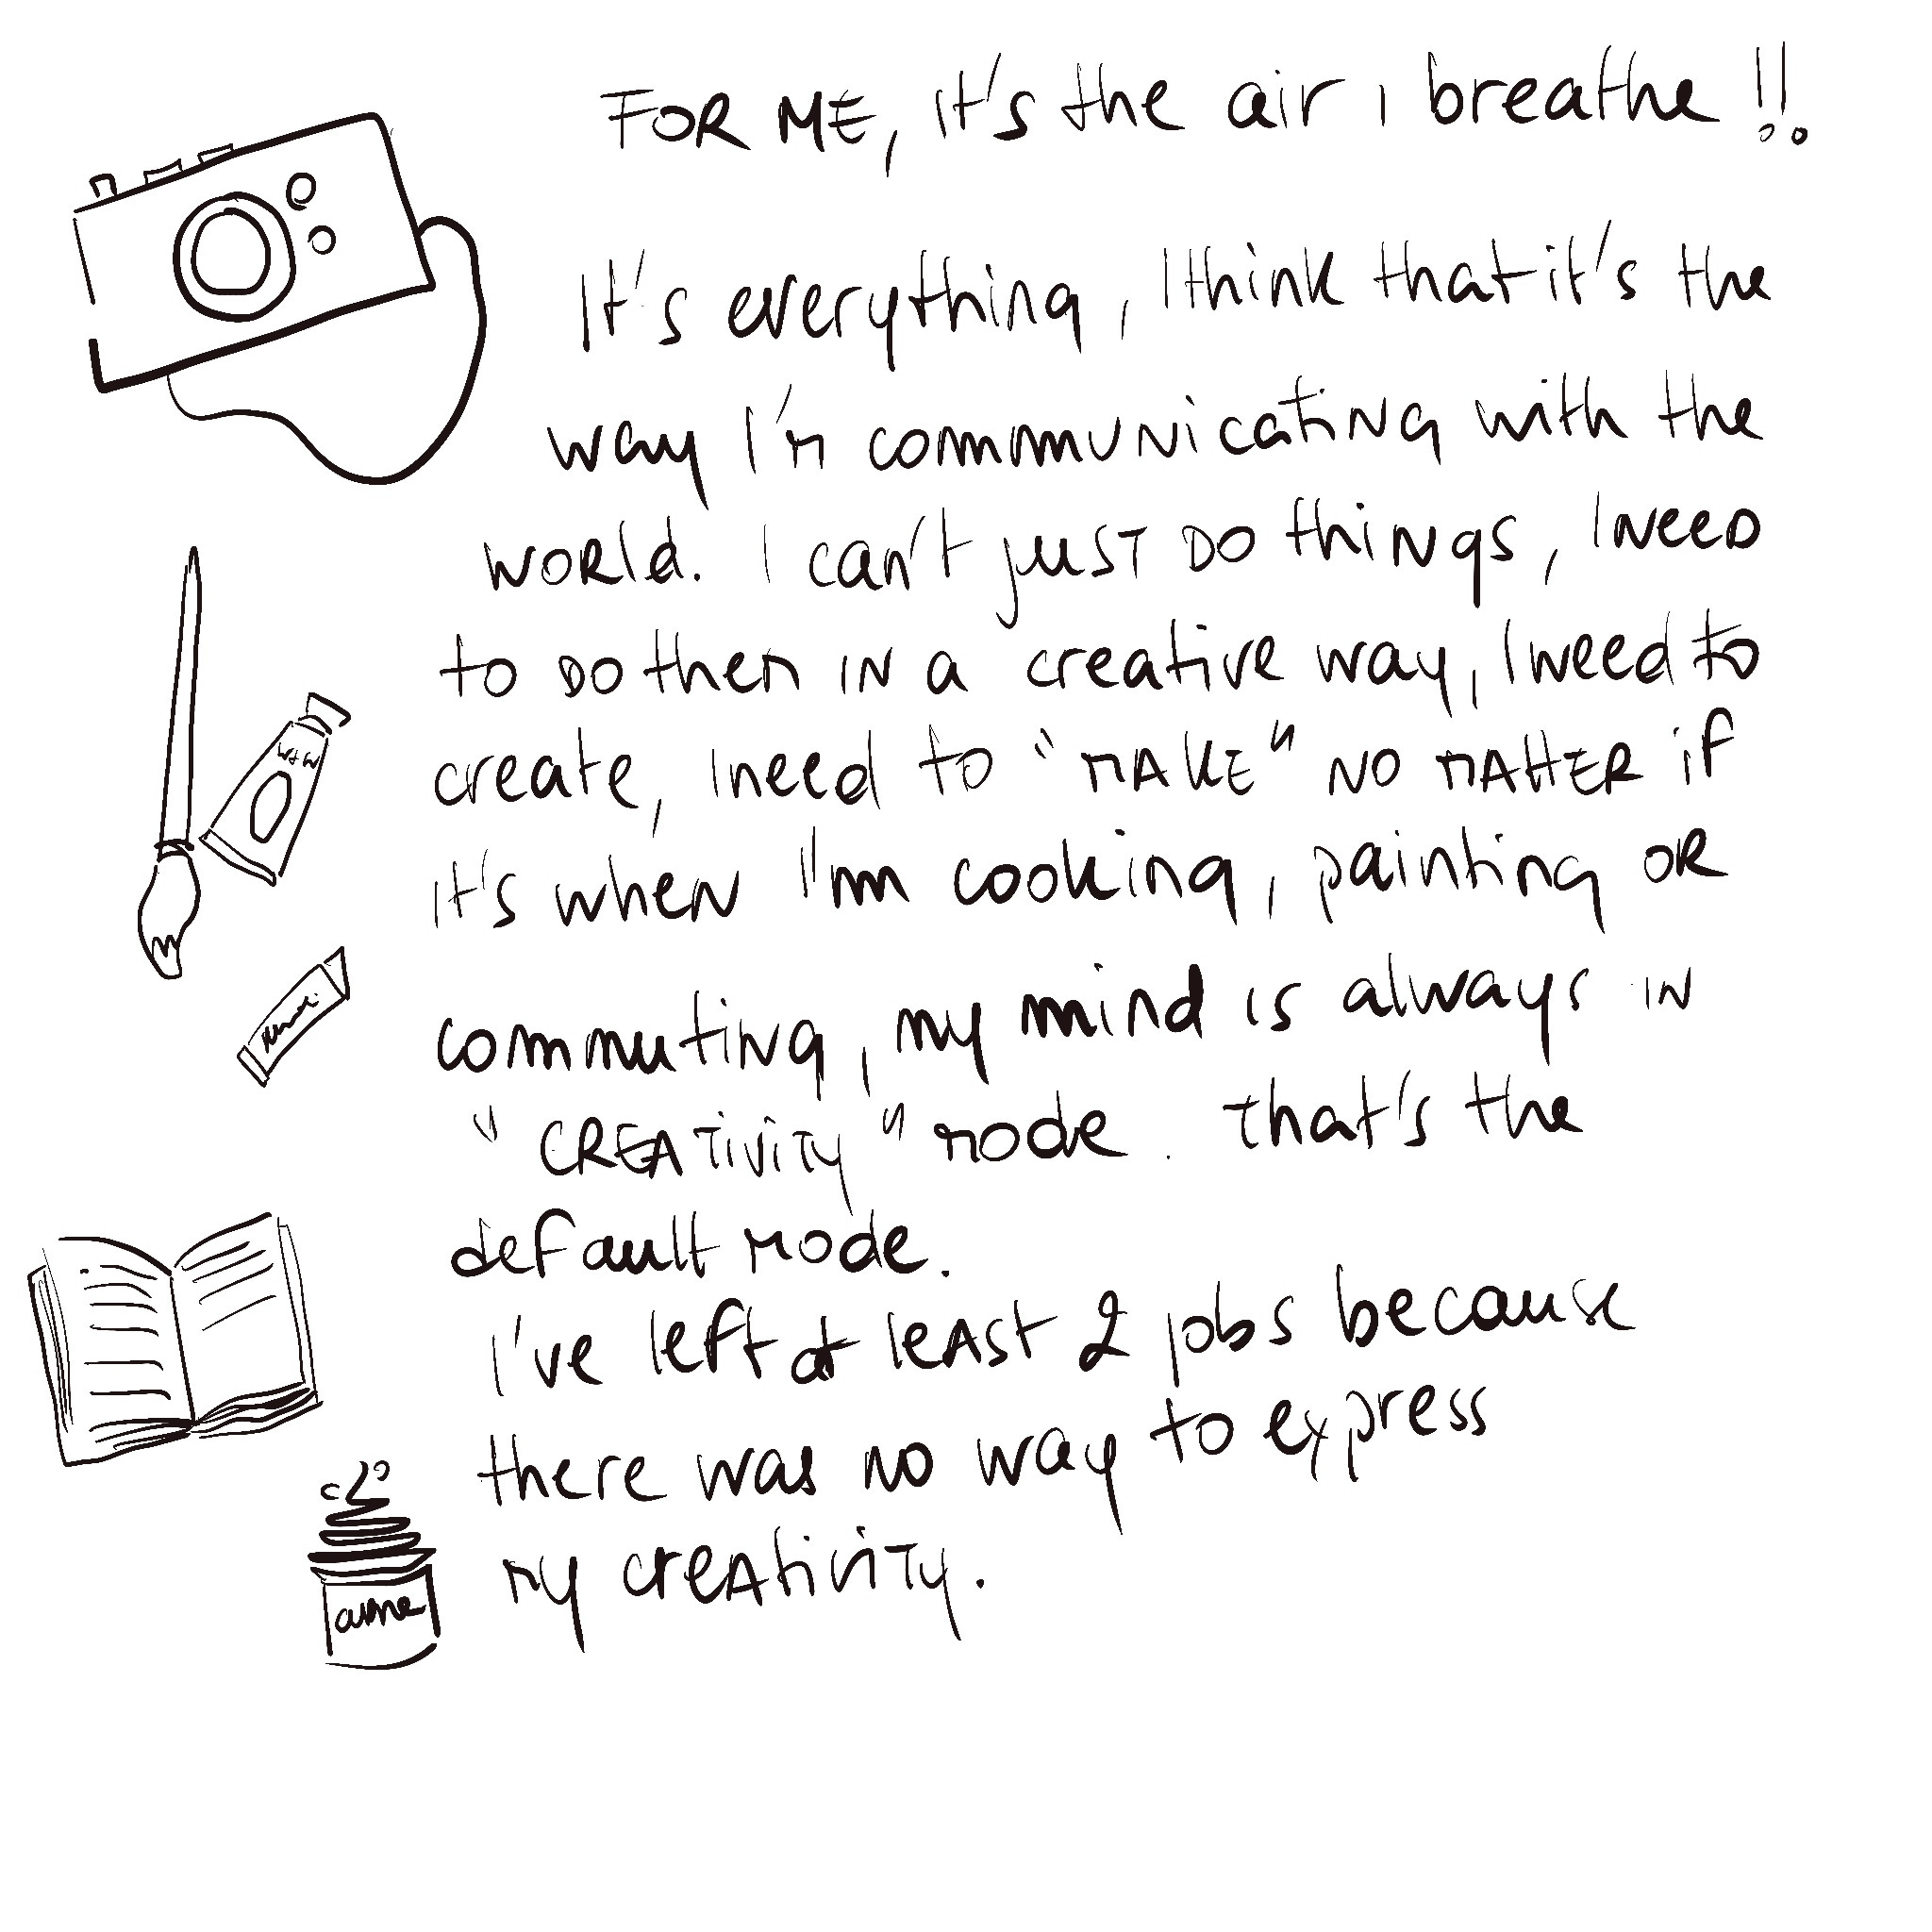 FOR ME, it's the air I breathe !!
It's everything, I think that it's the
way I'm communicating with the
WORld. I can't just DO things, I NEED
to DO them IN a creative way, I need to
create, I need to "MAKE" NO MATTER if
it's when I'm cooking, painting OR
commuting, my mind is always IN
"CREATIVITY" mode. that's the
default mode.
I've left at leAST 2 jobs because
there was no way to express
my creAtiviTy.